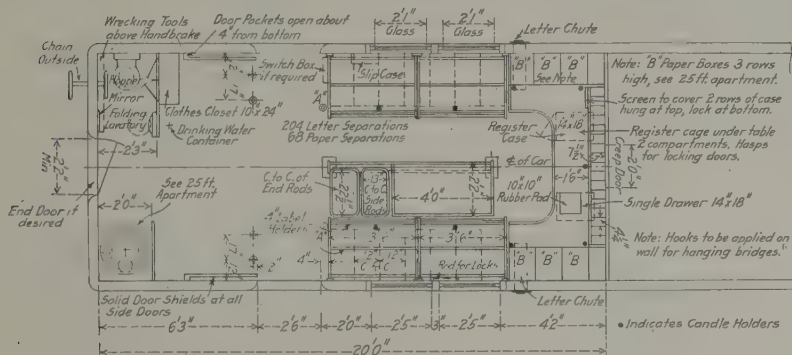 Wrecking Tools
above Handbrake
Door Pockets open about
4" from bottom
2'1"
Glass
2'1"
Glass
Letter Chute
Chain
Outside
Hopper
Mirror
Folding
Lavatory
Clothes Closet 10"x 24"
Drinking Water
Container
Switch Box
if required
"A"
Slip Case
"B"
"B"
"B"
See Note
Note: "B" Paper Boxes 3 rows
high, see 25 ft. apartment.
Screen to cover 2 rows of case
hung at top, lock at bottom.
204 Letter Separations
68 Paper Separations
Register
Case
14"x16"
Register cage under table
2 compartments. Hasps
for locking doors.
2'3"
2'2"
Min
End Door if
desired
See 25 ft.
Apartment
2'0"
C. to C. of
End Rods
22"
13"
C to C
Side
Rods
4'0"
22"
₵ of Car
10"x10"
Rubber Pad
1'6"
Creep Door
2'0"
Single Drawer 14"x18"
4" Label
Holders
3'6"
3'6"
12"
C to C
Rod for Locks
17"
2"
4"
4½"
Note: Hooks to be applied on
wall for hanging bridges."
"B"
"B"
"B"
Solid Door Shields at all
Side Doors
Letter Chute
6'3"
2'6"
2'0"
2'5"
3"
2'5"
4'2"
• Indicates Candle Holders
20'0"